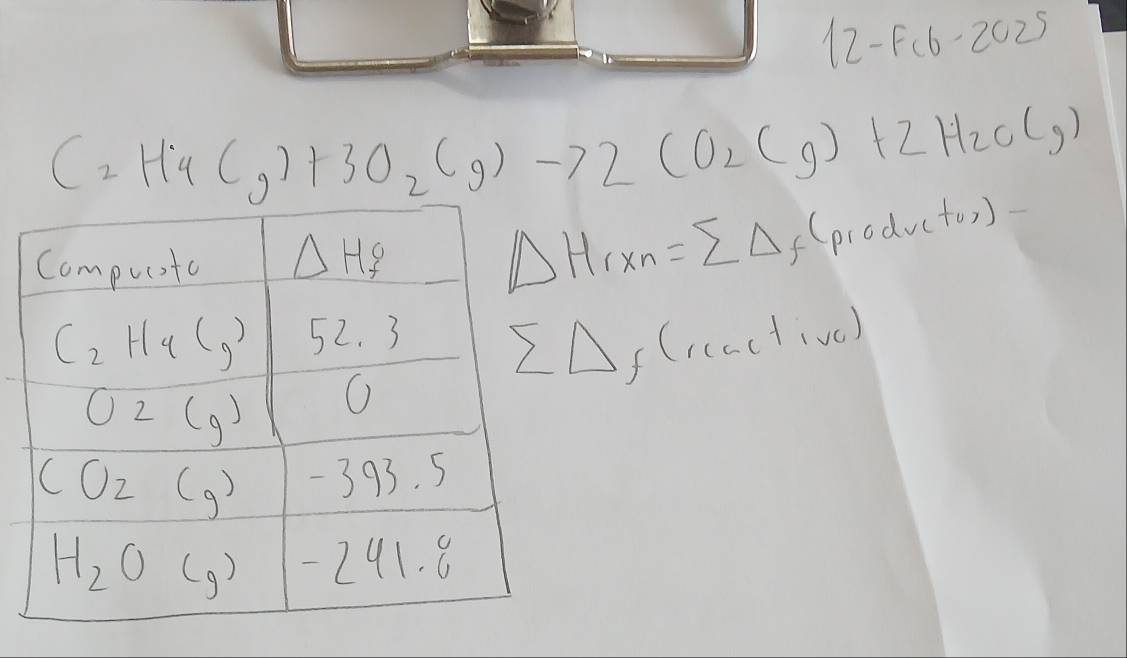 12-Feb-2025
C₂H₄(g)+3O₂(g)->2 CO₂(g)+2H₂O(g)
Compuesto ΔH°f
C₂H₄(g) 52.3
O2 (g) 0
CO₂ (g) -393.5
H₂O (g) -241.8
ΔHrxn=ΣΔf(productos)-
ΣΔf(reactivo)